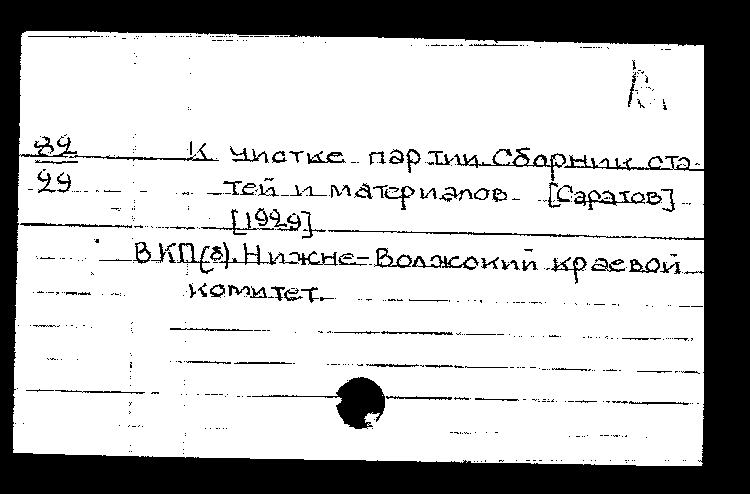 82
29
К чистке партии Сборник ста-
тей и материалов [Саратов]
[1929]
ВКП(б). Нижне-Волжский краевой
комитет.